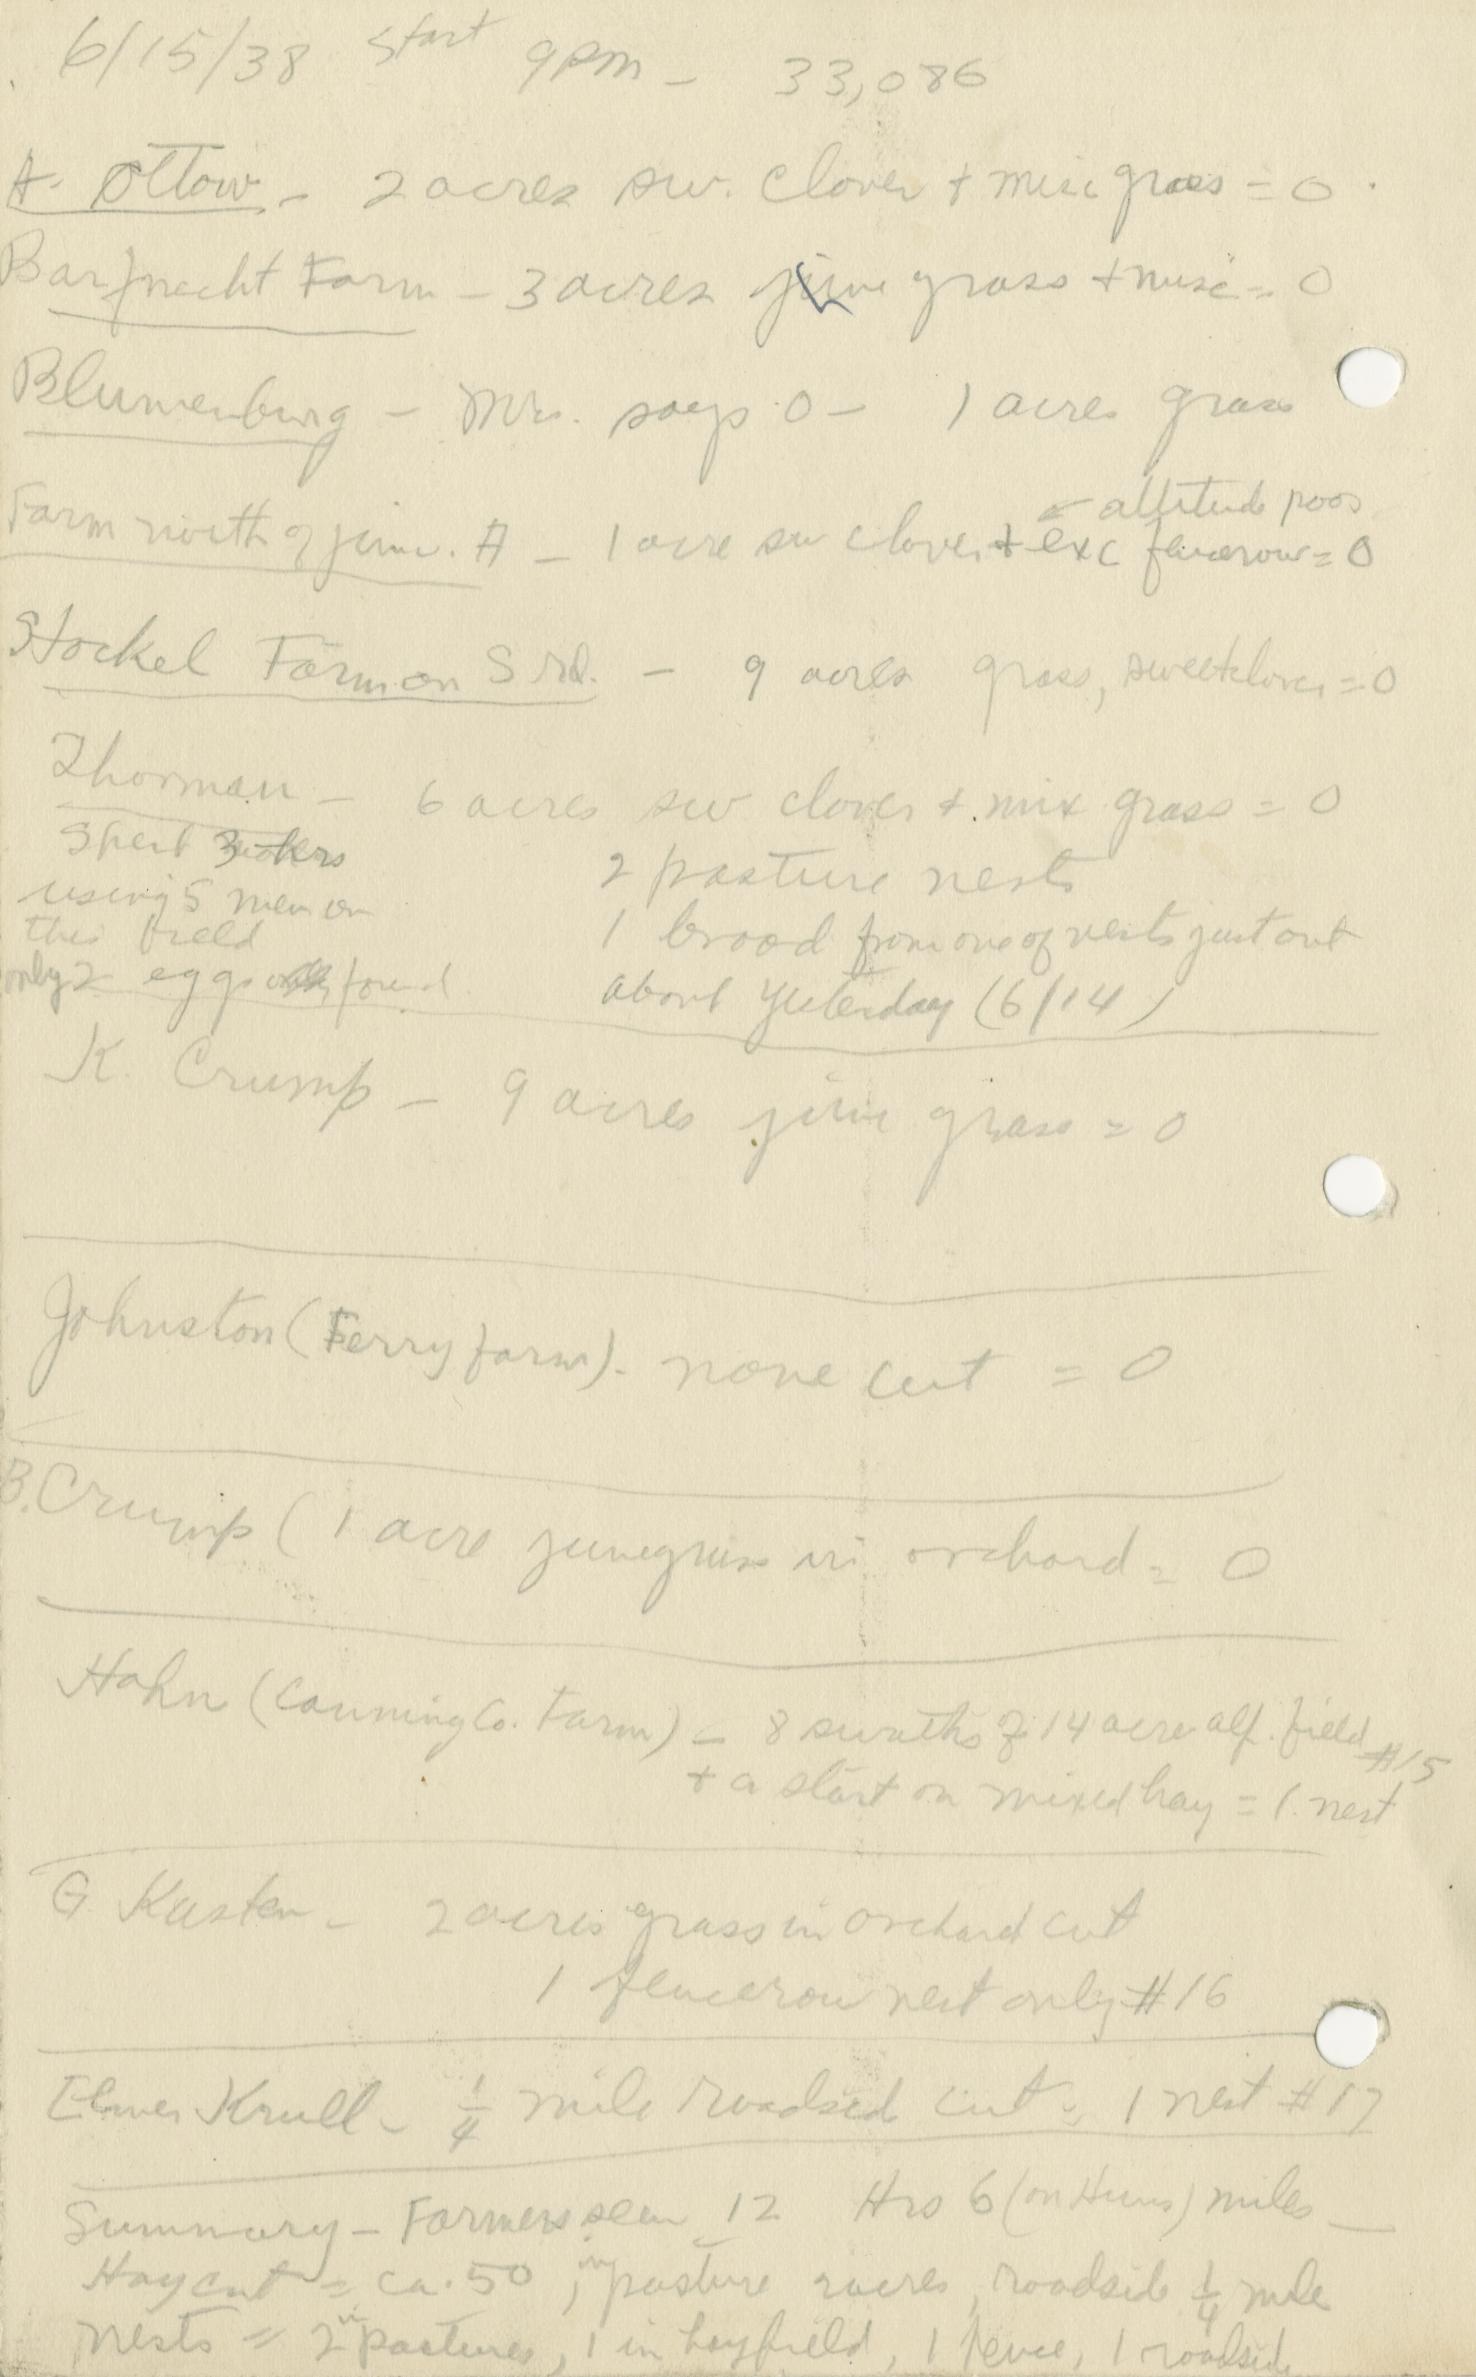 6/15/38 Start 9pm - 33,086
A. Ottow - 2 acres sw. clover + misc grass = 0
Barfnecht Farm - 3 acres june grass + misc = 0
Blumenburg - Mrs. says 0 - 1 acres grass
attitude poor
Farm north of junc. A - 1 acre sw clover + exc fencerow = 0
Stockel Farm on S rd. - 9 acres grass, sweetclover = 0
Thorman - 6 acres sw clover + mix grass = 0
Spent 3
using 5 men on
this field
only 2 eggs found
2 pasture nests
1 brood from one of nests just out
about yesterday (6/14)
K. Crump - 9 acres june grass = 0
Johnston (Ferry farm). none cut = 0
B. Crump ( 1 acre junegrass in orchard = 0
Hahn (Canning Co. Farm) - 8 swaths of 14 acre alf. field #15
+ a start on mixed hay = 1 nest
G Kasten - 2 acres grass in orchard cut
1 fencerow nest only #16
Elmer Krull - 1/4 mile roadside cut = 1 nest #17
Summary - Farmers seen 12 Hrs 6 (on Huns) miles _
Hay cut = ca. 50, in pasture 2 acres, roadside 1/4 mile
Nests = 2 in pastures, 1 in hayfield, 1 fence, 1 roadside